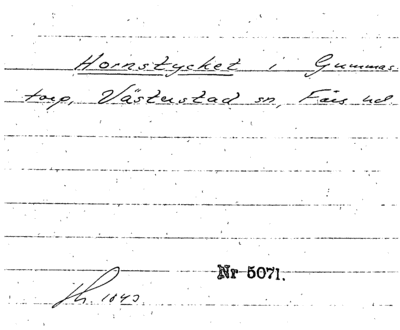 Hornstycket i Gummas-
torp, Västerstad sn, Färs hd
Nr 5071.
Th. 1843.